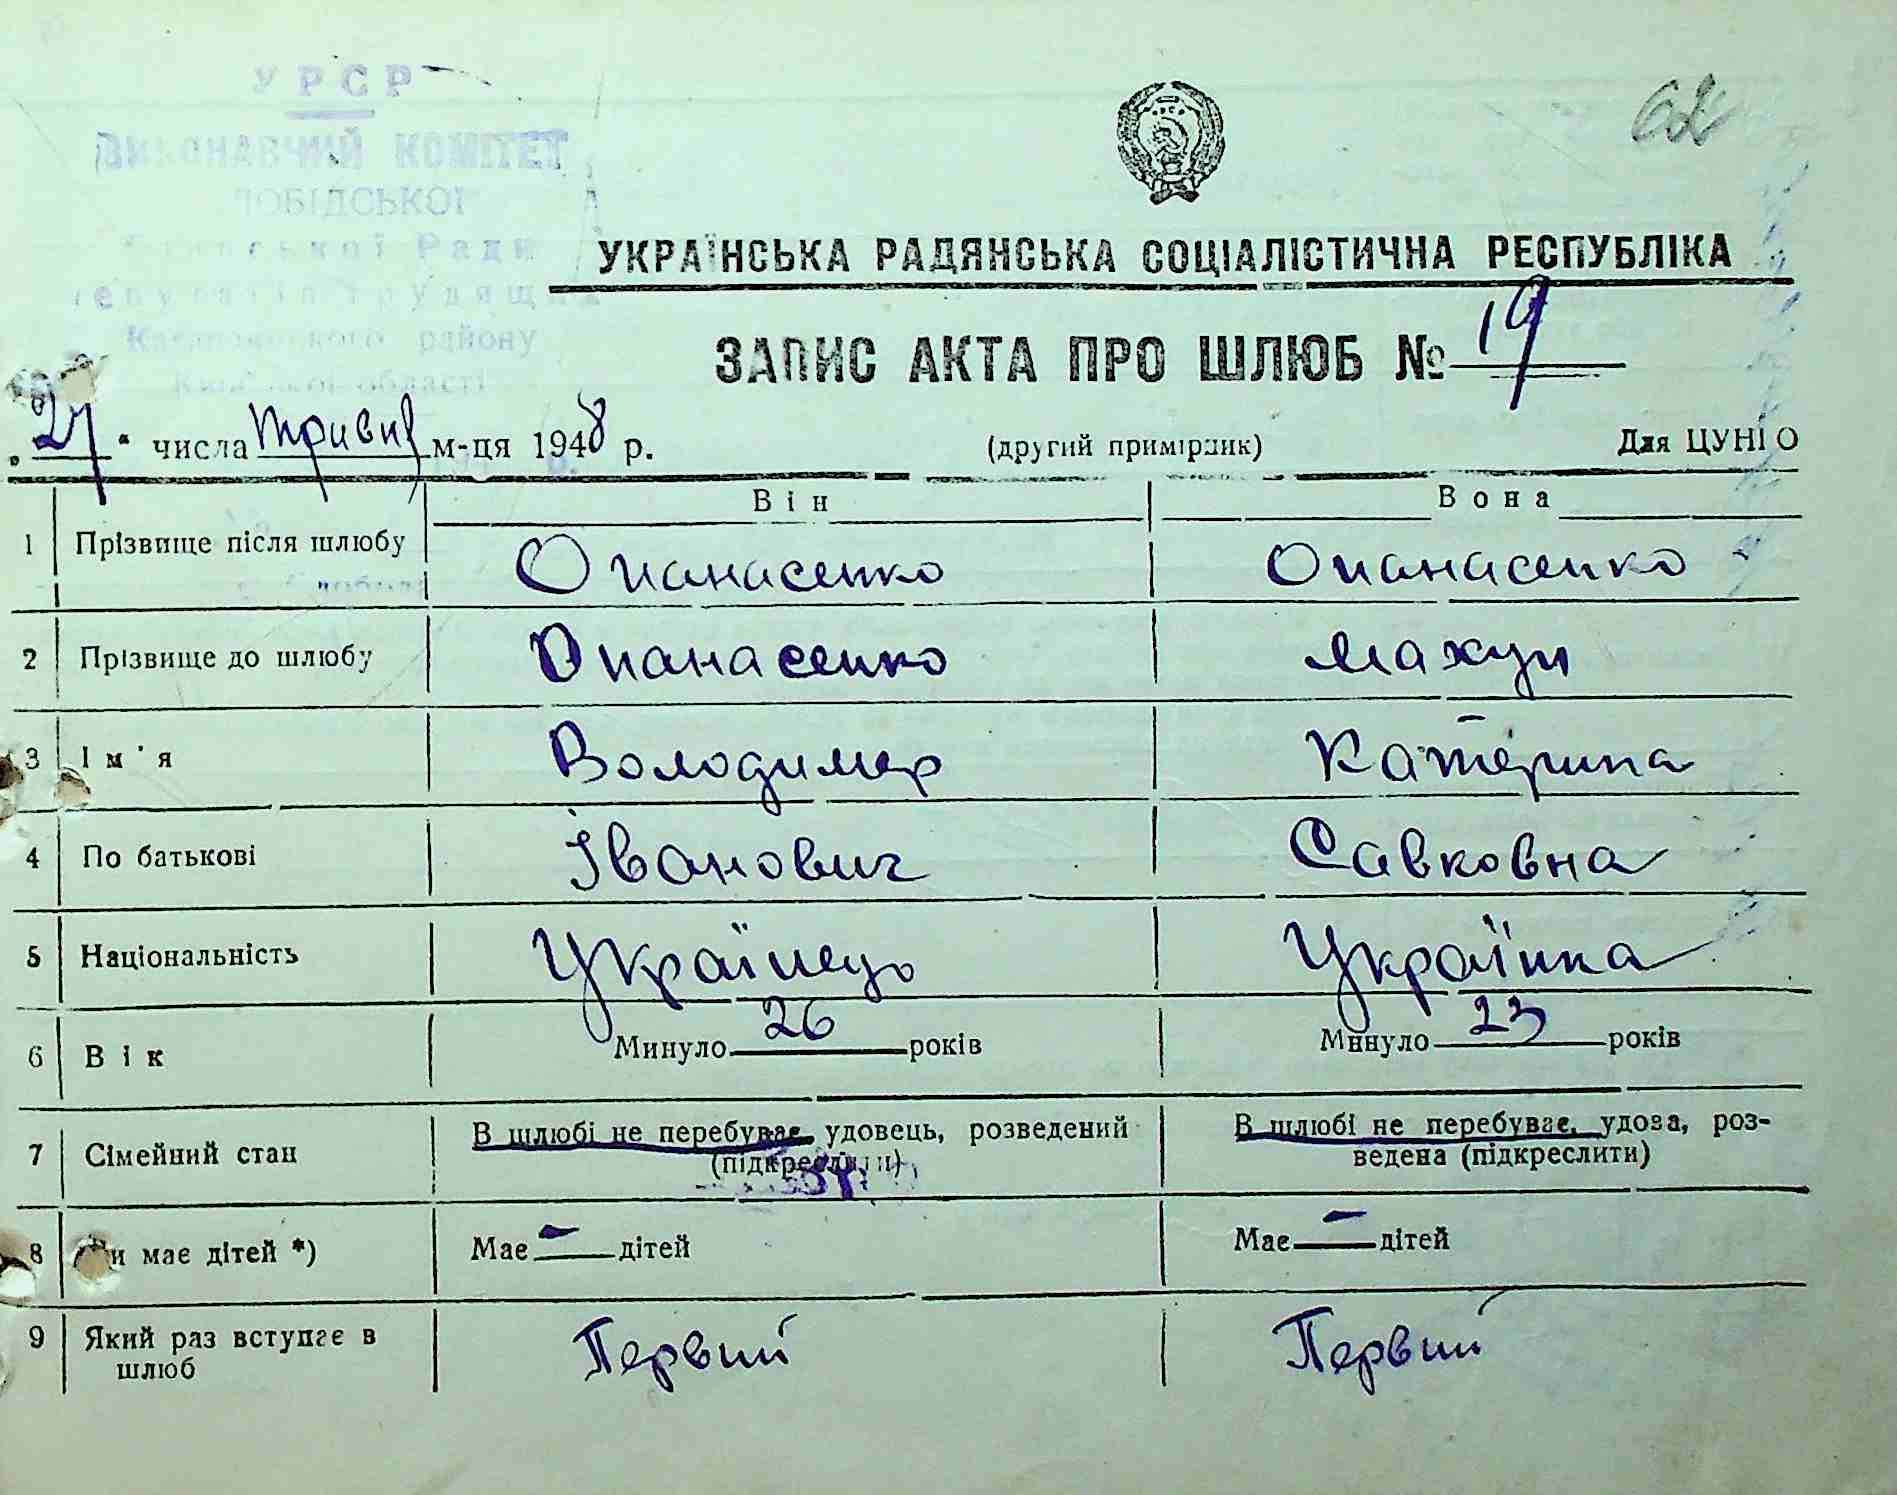 УРСР
62
ВИКОНАВЧИЙ КОМІТЕТ
ПОБІДСЬКОЇ
Ради
УКРАЇНСЬКА РАДЯНСЬКА СОЦІАЛІСТИЧНА РЕСПУБЛІКА
району
області
ЗАПИС АКТА ПРО ШЛЮБ № 19
"27" числа травня м-ця 1948 р. (другий примірник) Для ЦУНГО
Він Вона
1 Прізвище після шлюбу Опанасенко Опанасенко
2 Прізвище до шлюбу Опанасенко Махун
3 Ім'я Володимер Катерина
4 По батькові Іванович Савковна
5 Національність Українець Українка
6 Вік Минуло 26 років Минуло 23 років
7 Сімейний стан В шлюбі не перебуває, удовець, розведений (підкреслити) В шлюбі не перебуває, удова, роз-
ведена (підкреслити)
8 Чи має дітей *) Має — дітей Має — дітей
9 Який раз вступає в Первий Первий
шлюб